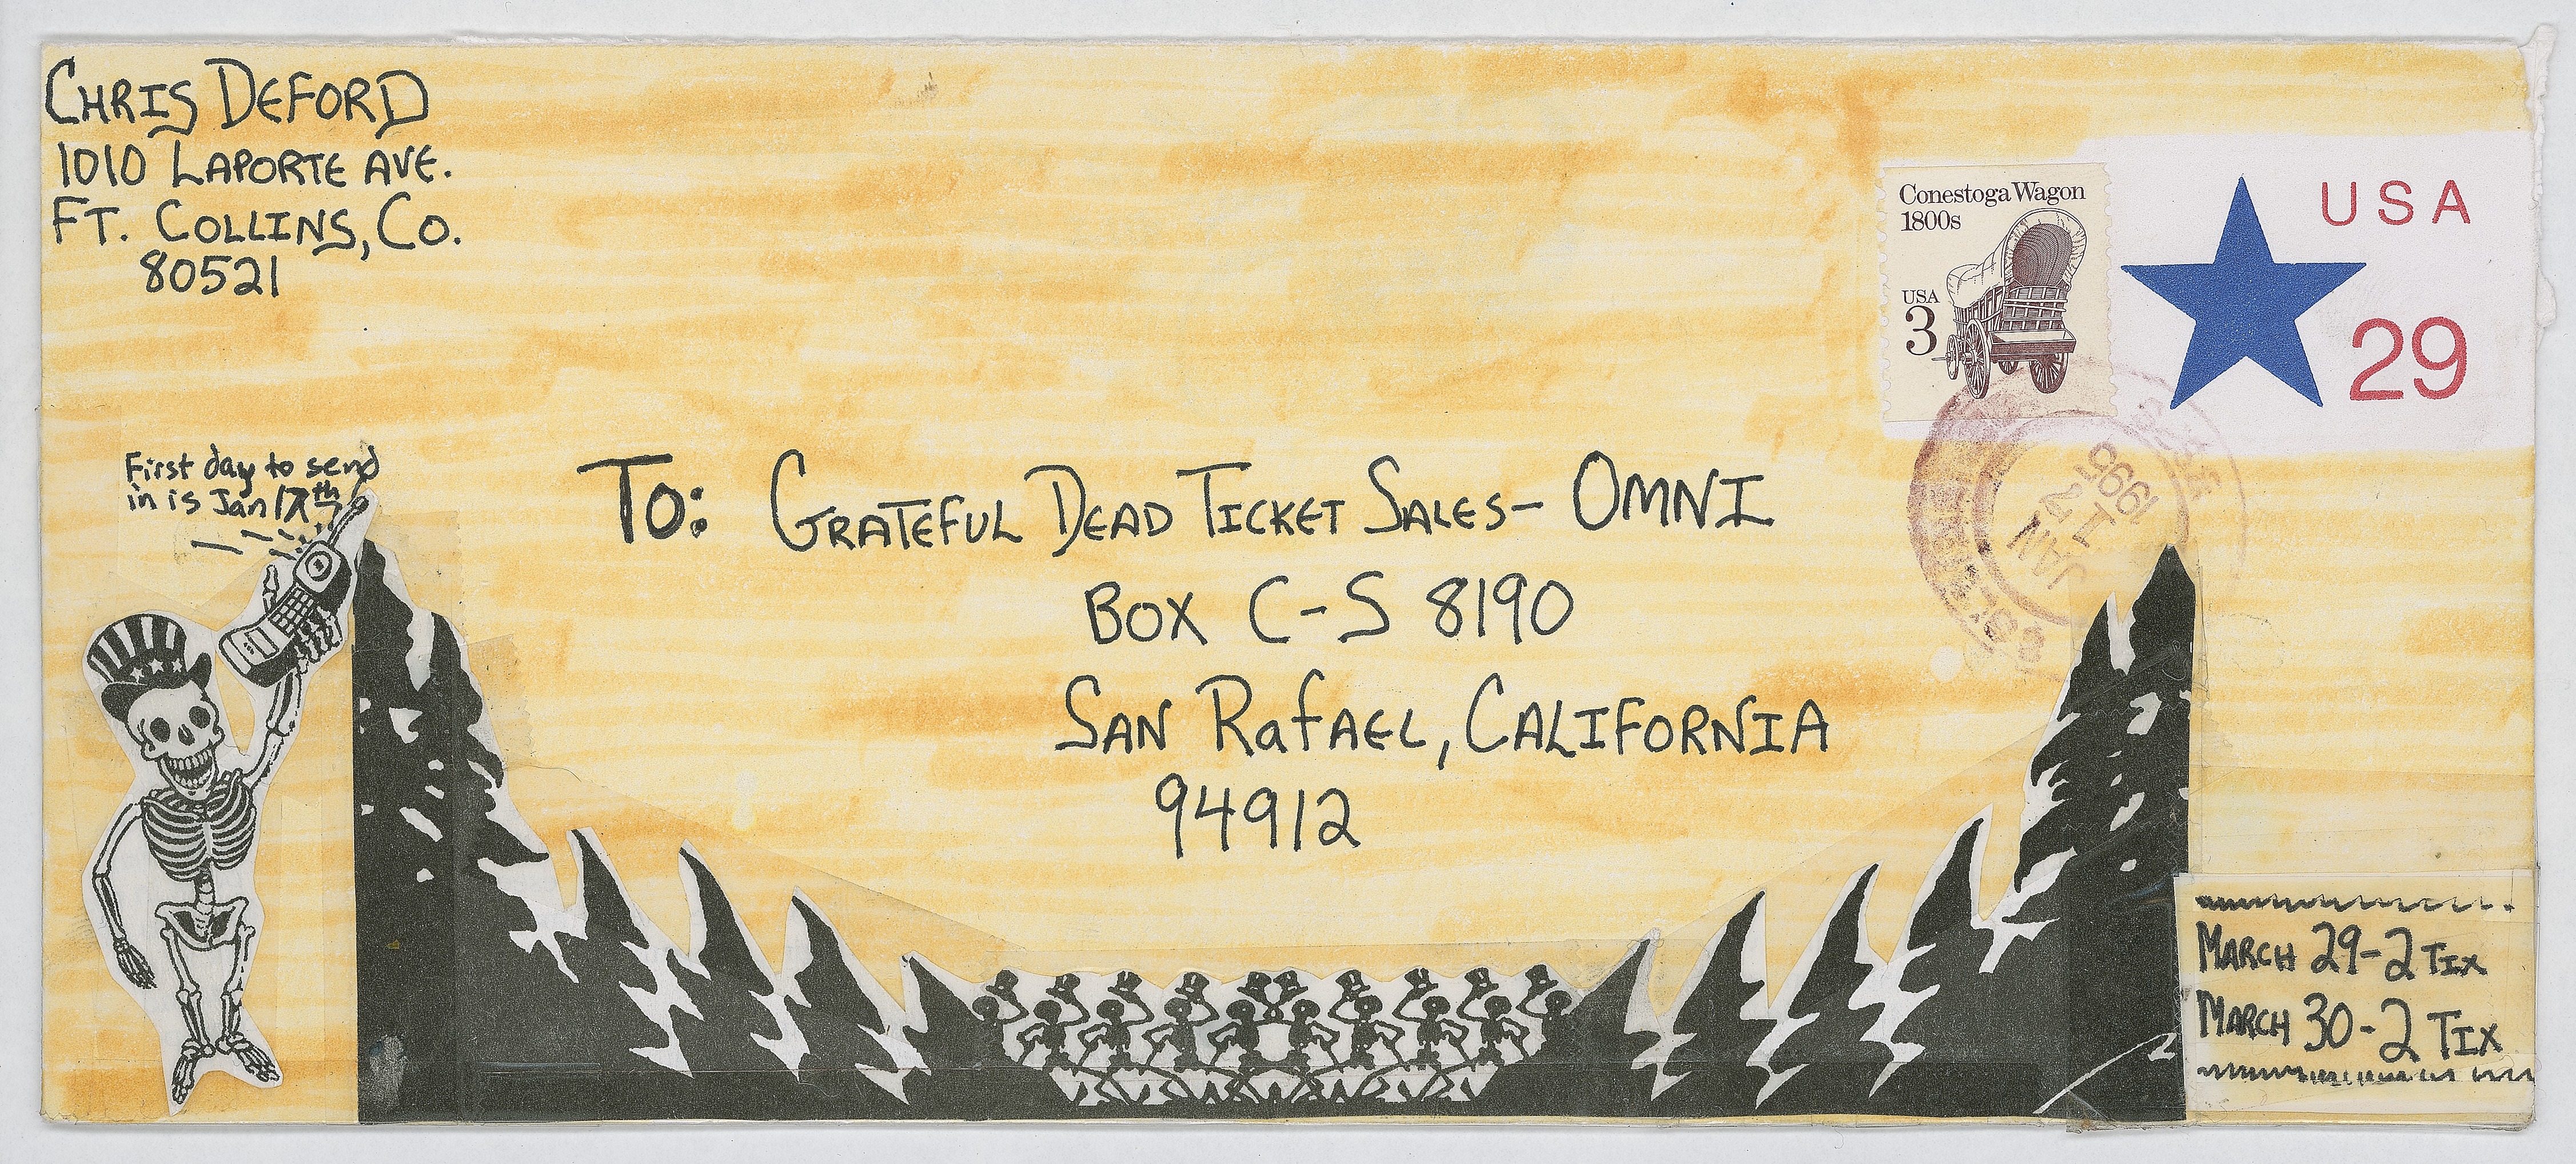 CHRIS DEFORD
1010 LAPORTE AVE.
FT. COLLINS, CO.
80521
Conestoga Wagon
1800s
USA
3
USA
29
First day to send
in is Jan 17th
TO: GRATEFUL DEAD TICKET SALES- OMNI
BOX C-S 8190
SAN RafAEL, CALIFORNIA
94912
JAN
17
1995
MARCH 29-2 TIX
MARCH 30-2 TIX